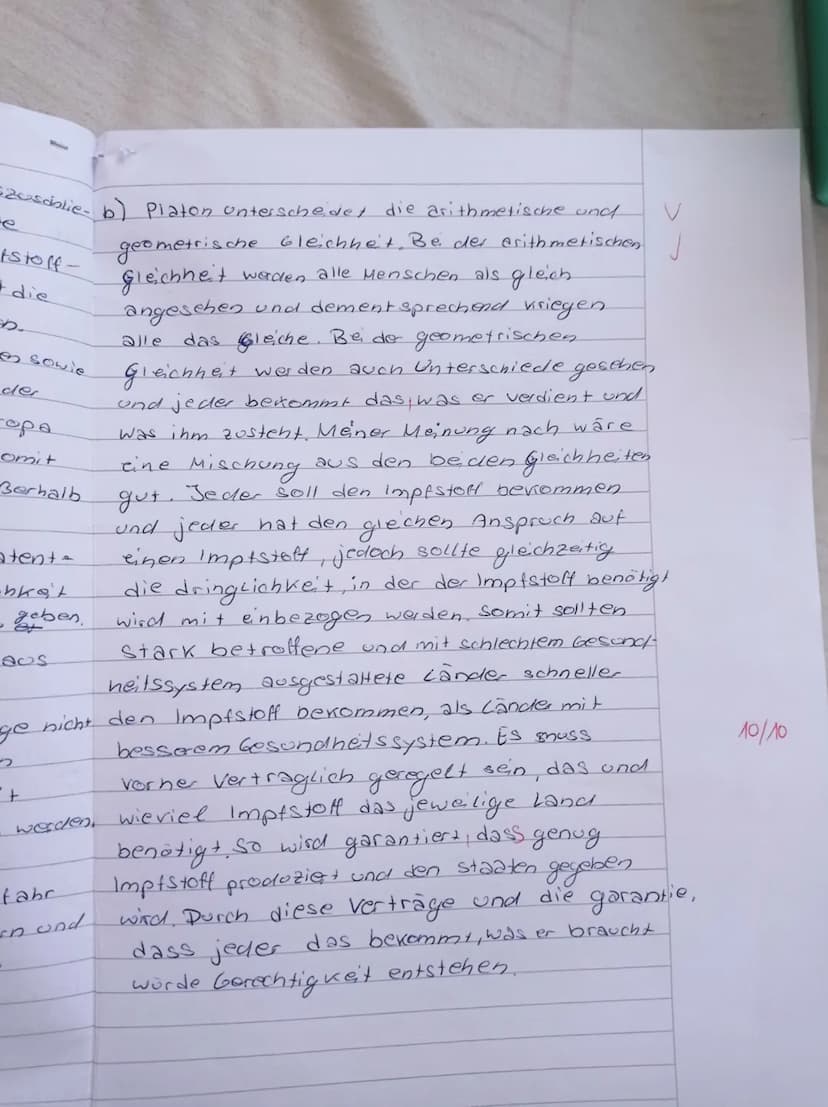 b) Platon unterscheidet die arithmetische und
geometrische Gleichheit. Bei der arithmetischen
Gleichheit werden alle Menschen als gleich
angesehen und dementsprechend kriegen
alle das Gleiche. Bei der geometrischen
Gleichheit werden auch Unterschiede gesehen
und jeder bekommt das, was er verdient und
was ihm zusteht. Meiner Meinung nach wäre
eine Mischung aus den beiden Gleichheiten
gut. Jeder soll den Impfstoff bekommen
und jeder hat den gleichen Anspruch auf
einen Impfstoff, jedoch sollte gleichzeitig
die dringlichkeit, in der der Impfstoff benötigt
wird mit einbezogen werden. Somit sollten
stark betroffene und mit schlechtem Gesund-
heitssystem ausgestattete Länder schneller
den Impfstoff bekommen, als Länder mit
besserem Gesundheitssystem. Es muss
vorher vertraglich geregelt sein, das und
wieviel Impfstoff das jeweilige Land
benötigt. So wird garantiert, dass genug
Impfstoff produziert und den Staaten gegeben
wird. Durch diese Verträge und die garantie,
dass jeder das bekommt, was er braucht
würde Gerechtigkeit entstehen.
10/10
szuschlie-
e
tstoff-
die
en sowie
der
ropa
omit
ßerhalb
atent-
geben.
aus
ge nicht
t
werden.
fahr
en und